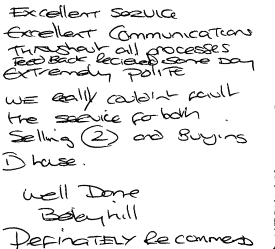 Excellent Service
Excellent Communications
Throughout all processes
Feed Back Recieved same day
Extremely Polite
We really couldn't fault
the service for both
Selling (2) and Buying
1) house.
Well Done
Definately Recommend